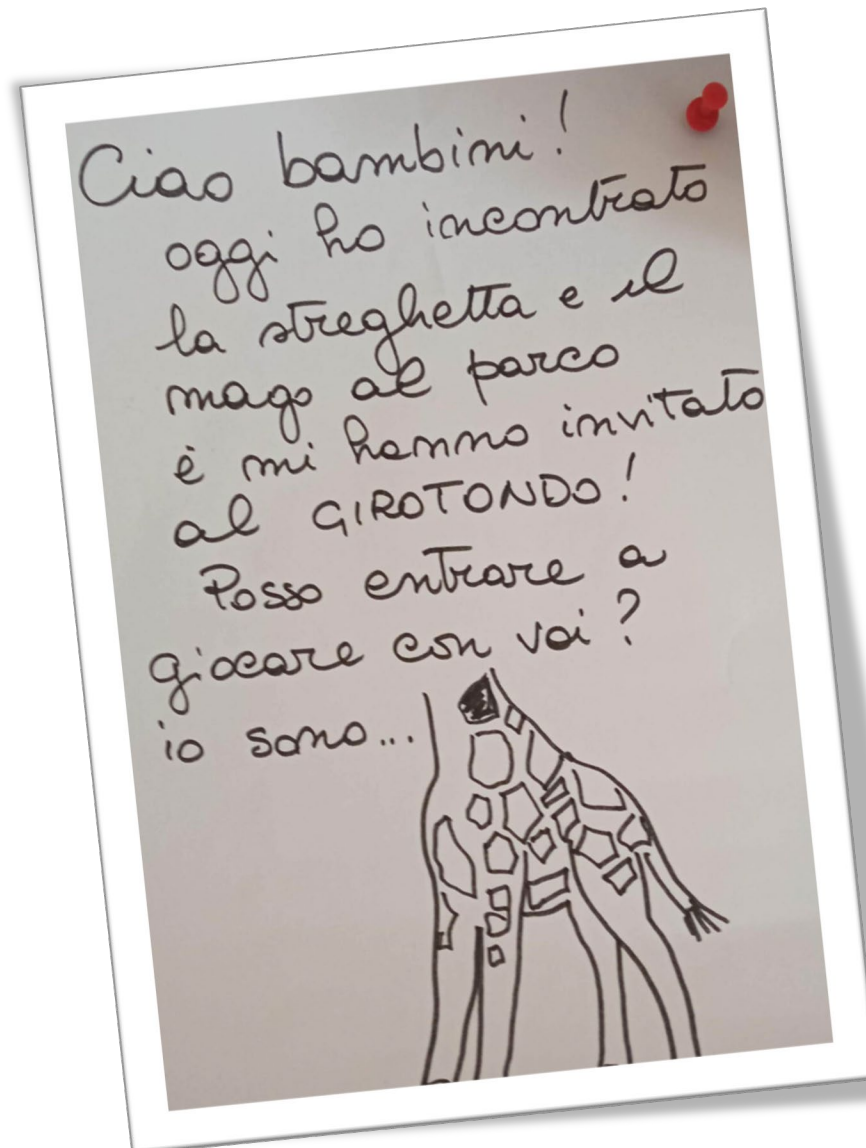 Ciao bambini!
oggi ho incontrato
la streghetta e il
mago al parco
è mi hanno invitato
al GIROTONDO!
Posso entrare a
giocare con voi?
io sono...